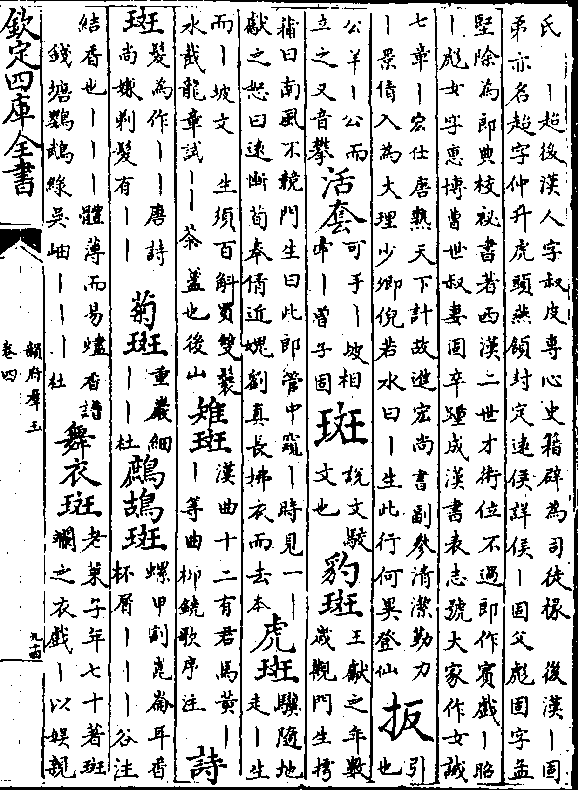 氏　｜超後漢人字叔皮專心史籍辟為司徒掾　後漢｜固
弟亦名超字仲升虎頭燕頷封定遠侯詳侯｜固父彪固字孟
堅除為郎典校祕書著西漢二世才術位不過郎作賓戲｜昭
｜彪女字惠博曹世叔妻固卒踵成漢書表志號大家作女誡
七章｜宏仕唐熟天下計故進宏尚書副參清潔勤力
｜景倩入為大理少卿倪若水曰｜生此行何異登仙
扳
引
也
公羊｜公而
立之又音攀
活套
可手｜坡相
串｜曾子固
斑
說文駁
文也
豹斑
王獻之年數
歲觀門生摴
蒱曰南風不競門生曰此郎管中窺｜時見一｜
獻之怒曰遠慚荀奉倩近媿劉真長拂衣而去本
虎斑
驥隨地
走｜生
而｜坡文　生須百斛買雙鬟
水截龍章試｜｜茶蓋也後山
雉斑
漢曲十二有君馬黃｜
｜等曲柳鐃歌序注
詩
斑
髮為作｜｜唐詩
尚嫌剃髮有｜｜
菊斑
重巖細
｜｜杜
鷓鴣斑
螺甲割崑崙耳香
杯屑｜｜｜谷注
結香也｜｜｜體薄而易爐香譜
錢塘鸚鵡綠吳岫｜｜｜杜
舞衣斑
老萊子年七十著斑
斕之衣戲｜以娛親
欽定四庫全書
韻府羣玉
卷四